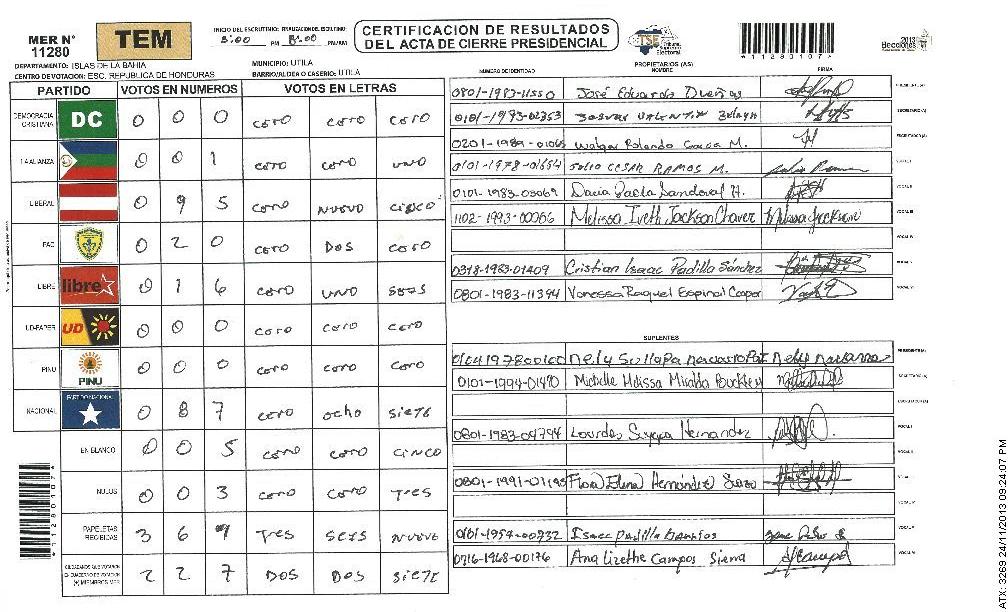 MER N° 11280
TEM
INICIO DEL ESCRUTINIO: FINALIZACION DEL ESCRUTINIO:
5:00 PM 8:00 PM/AM
CERTIFICACION DE RESULTADOS
DEL ACTA DE CIERRE PRESIDENCIAL
TSE Tribunal Supremo Electoral
2013
Elecciones
*11280107*
DEPARTAMENTO: ISLAS DE LA BAHIA MUNICIPIO: UTILA
CENTRO DE VOTACION: ESC. REPUBLICA DE HONDURAS BARRIO/ALDEA O CASERIO: UTILA
PARTIDO VOTOS EN NUMEROS VOTOS EN LETRAS
DEMOCRACIA CRISTIANA DC 0 0 0 cero cero cero
LA ALIANZA 0 0 1 cero cero uno
LIBERAL 0 9 5 cero nueve cinco
PAC 0 2 0 cero dos cero
LIBRE libre 0 1 6 cero uno seis
UD-FAPER UD 0 0 0 cero cero cero
PINU PINU 0 0 0 cero cero cero
NACIONAL PARTIDO NACIONAL 0 8 7 cero ocho siete
EN BLANCO 0 0 5 cero cero cinco
NULOS 0 0 3 cero cero tres
PAPELETAS RECIBIDAS 3 6 9 tres seis nueve
CIUDADANOS QUE VOTARON EN CUADERNO DE VOTACION (+) MIEMBROS MER 2 2 7 dos dos siete
*11280107*
PROPIETARIOS (AS)
NUMERO DE IDENTIDAD NOMBRE FIRMA
0801-1983-11550 José Eduardo Dueñas PRESIDENTE(A)
0101-1993-02353 SECRETARIO(A)
0201-1989-01065 Walger Rolando Garcia M. ESCRUTADOR(A)
0101-1978-01654 Julio CESAR RAMOS M. VOCAL I
0101-1983-03069 Dacia Paola Sandoval H. VOCAL II
1102-1993-00066 Melissa Iveth Jackson Chavez Melissa Jackson VOCAL III
VOCAL IV
0318-1983-01409 Cristian Isaac Padilla Sánchez VOCAL V
0801-1983-11394 Vanessa Raquel Espinal VOCAL VI
SUPLENTES
Nely PRESIDENTE(A)
0101-1994-01470 Michelle Melissa Miralda SECRETARIO(A)
ESCRUTADOR(A)
0801-1983-04794 Lourdes Suyapa Hernandez VOCAL I
VOCAL II
0801-1991-01195 Flora Elena Hernández VOCAL III
VOCAL IV
0101-1957-00732 Isaac Padilla VOCAL V
0716-1968-00176 Ana Lizethe Campos Sierra VOCAL VI
ATX: 3269 24/11/2013 09:24:07 PM